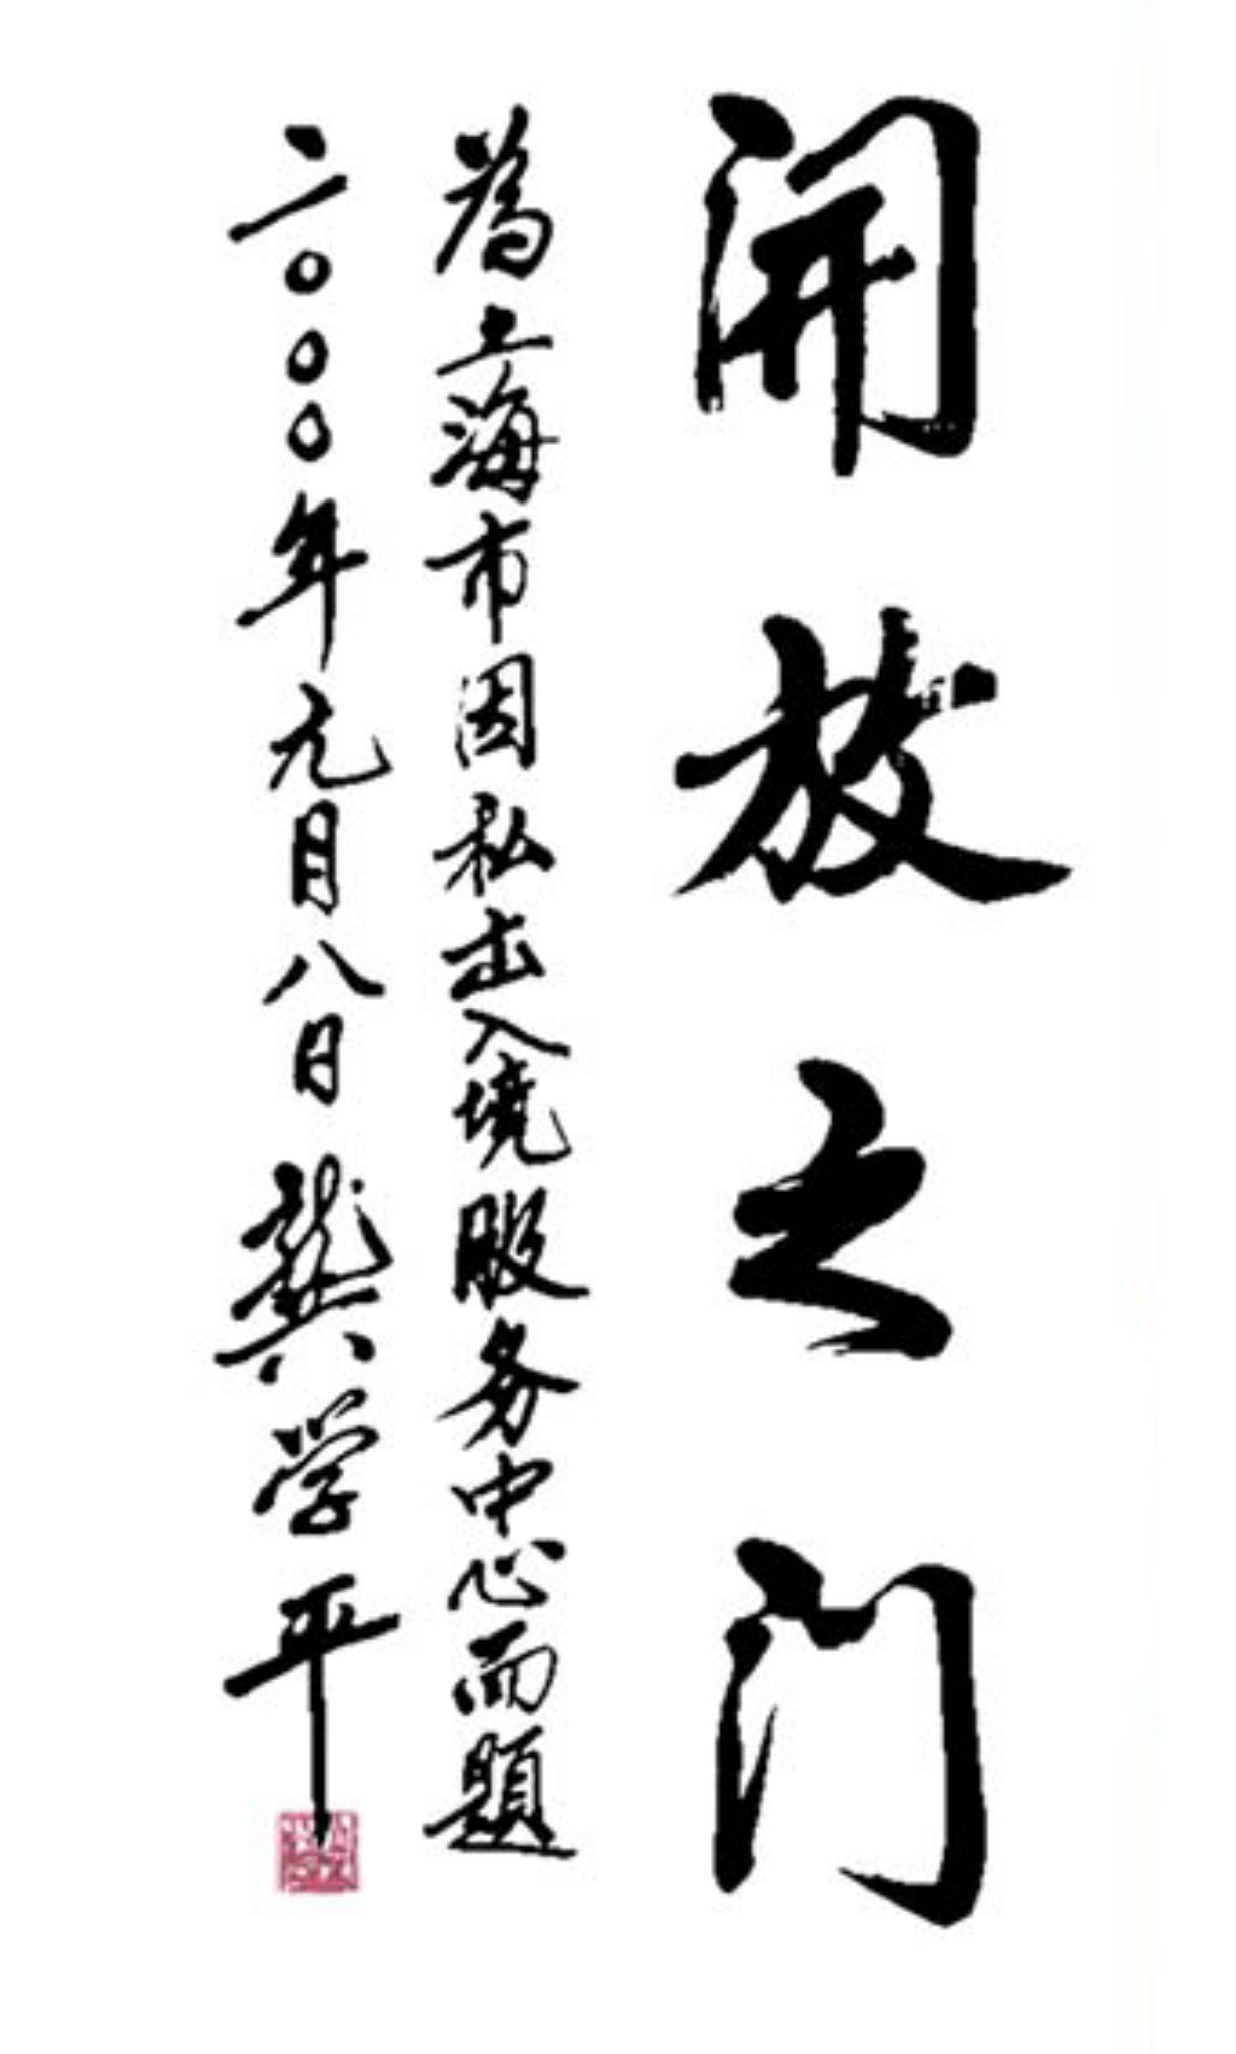 開放之门
為上海市因私出入境服务中心而題
二〇〇〇年元月八日 龚学平